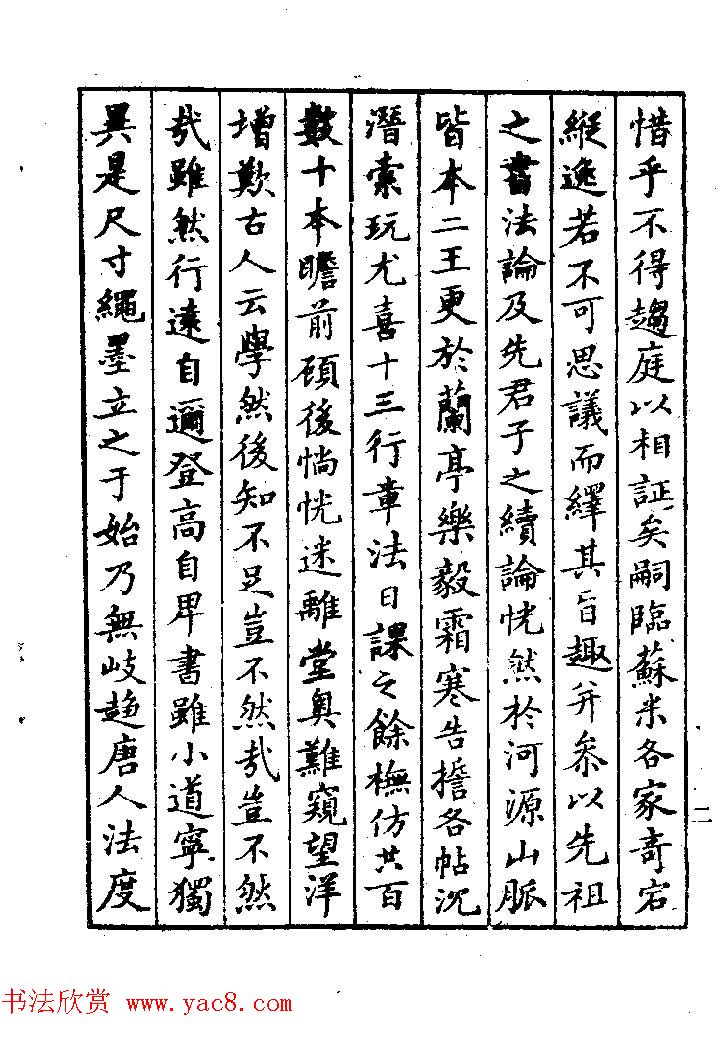 惜乎不得趨庭以相証矣嗣臨蘇米各家奇宕
縱逸若不可思議而繹其旨趣并叅以先祖
之書法論及先君子之續論恍然於河源山脈
皆本二王更於蘭亭樂毅霜寒告誓各帖沉
潛索玩尤喜十三行章法日課之餘橅仿共百
數十本瞻前顧後惝恍迷離堂奧難窺望洋
增歎古人云學然後知不足豈不然哉豈不然
哉雖然行遠自邇登高自卑書雖小道寧獨
異是尺寸繩墨立之于始乃無歧趨唐人法度
二
书法欣赏 www.yac8.com